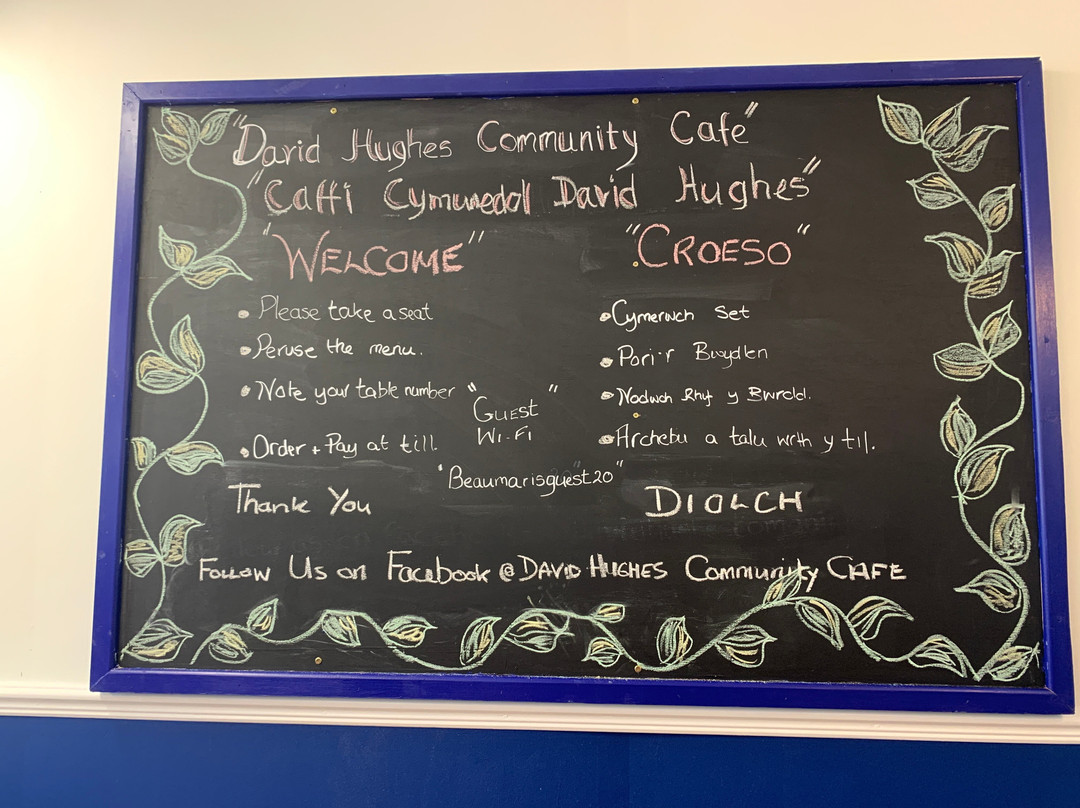 "David Hughes Community Cafe"
"Caffi Cymunedol David Hughes"
"WELCOME"
"CROESO"
• Please take a seat
• Peruse the menu.
• Note your table number
• Order + Pay at till.
Thank You
"GUEST"
WI-FI
"Beaumarisguest20"
• Cymerwch Set
• Pori'r Bwydlen
• Nodwch Rhif y Bwrdd.
• Archebu a talu wrth y til.
DIOLCH
FOLLOW US on Facebook @DAVID HUGHES Community CAFE